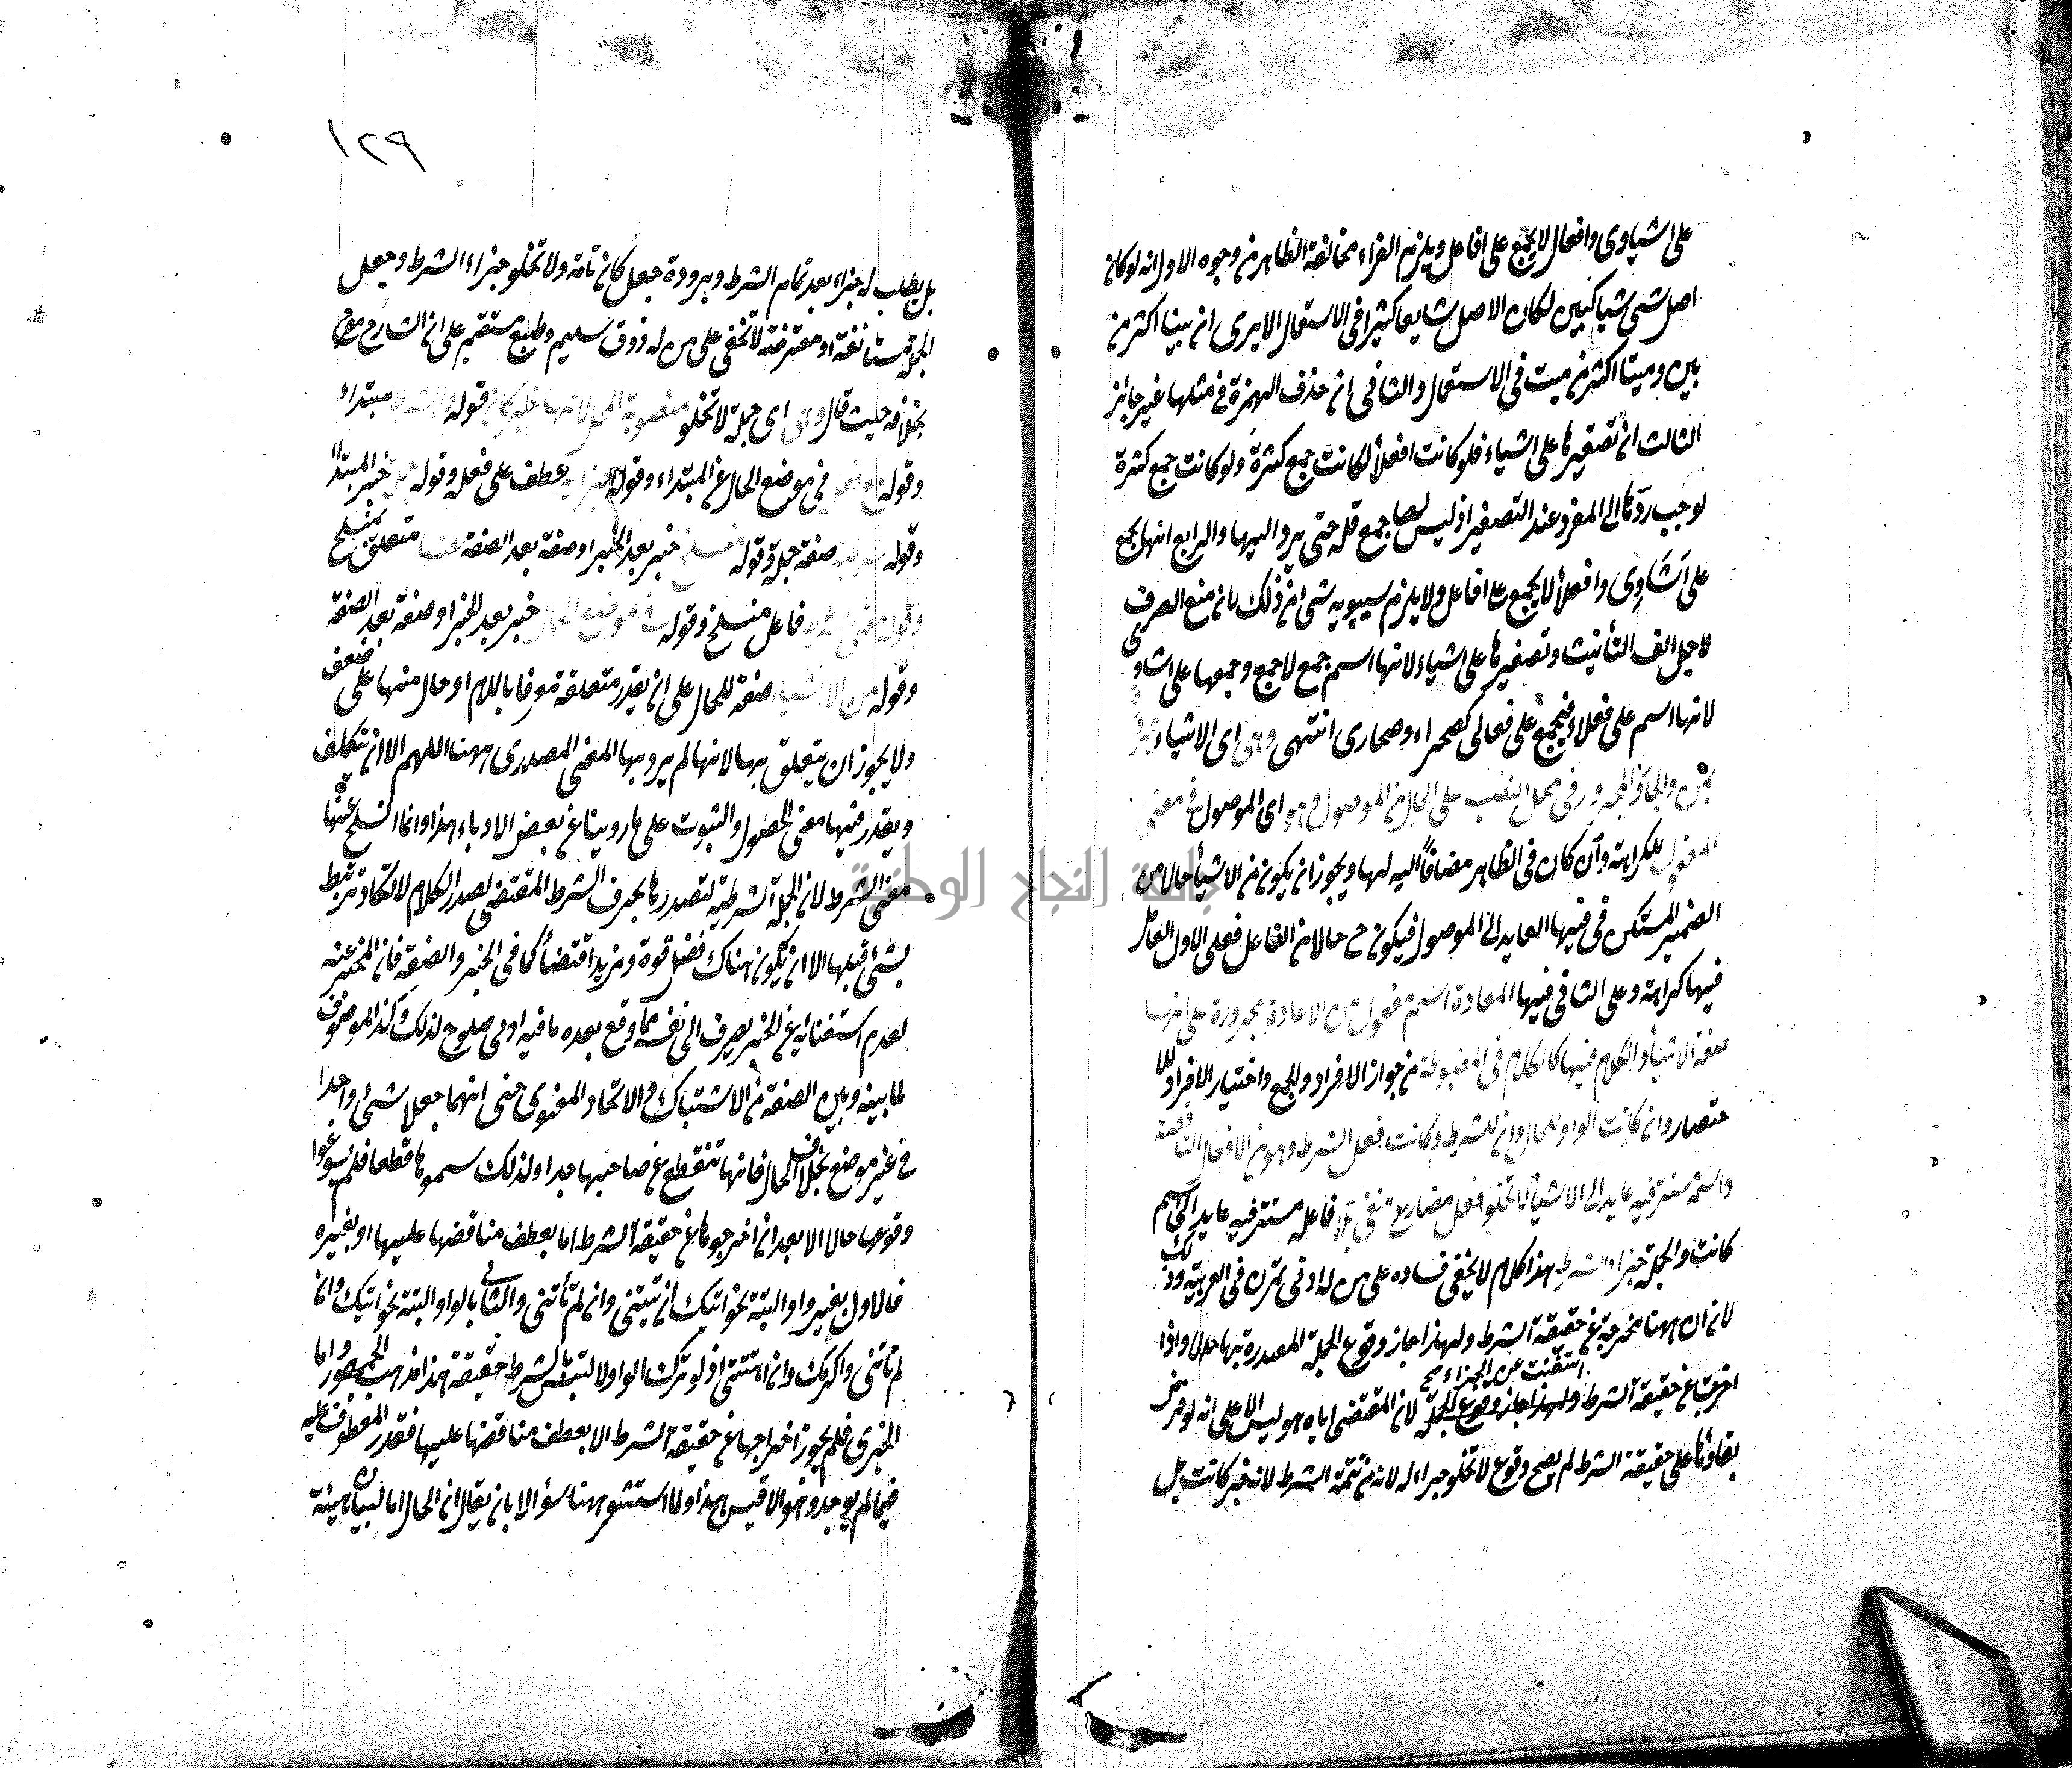 على اشياوى وافعال لا يجمع على افاعل ويلزم الفراء مخالفة الظاهر من وجوه الاول انه لو كان
اصل شئ شيا كبين لكان الاصل شايعا كثيرا فى الاستعمال الا يرى ان بينا اكثر من
بين وميتا اكثر من ميت فى الاستعمال والثانى ان حذف الهمزة فى مثلها غير جائز
الثالث ان تصغيرها على اشياء فلو كانت افعلاء لكانت جمع كثرة ولو كانت جمع كثرة
لوجب ردّها الى المفرد عند التصغير اذ ليس لها جمع قلة حتى يرد اليها والرابع انها تجمع
على اَشَاوِى وافعلاء لا يجمع على افاعل ولا يلزم سيبويه شئ من ذلك لان منع الصرف
لاجل الف التأنيث وتصغيرها على اشياء لانها اسم جمع لا جمع وجمعها على اشاوى
لانها اسم على فعلاء فيجمع على فعالى كصحراء وصحارى انتهى وهى اى الاشياء
بمن والجار والمجرور فى محل النصب على الحال من الموصول وهو اى الموصول فى معنى
المفعول للكراهة وان كان فى الظاهر مضافاً اليه لها ويجوز ان يكون من الاشيأ حالا من
الضمير المستكن فى فيها العايد الى الموصول فيكون ح حالا من الفاعل فعلى الاول العامل
فيها كراهة وعلى الثانى فيها المعادة اسم مفعول من الاعادة مجرورة على انها
صفة الاشيأ والكلام فيها كالكلام فى المضبوطة من جواز الافراد والجمع واختيار الافراد للا
ختصار وان كانت الواو للحال وان للشرط وكانت فعل الشرط وهو من الافعال الناقصة
واسمه مستتر فيه عايد الى الاشيأ لا تخلو فعل مضارع منفى بلا فاعله مستتر فيه عايد الى اسم
كانت والجملة جزاء الشرط هذا كلام لا يخفى فساده على من له ادنى تمرن فى العربية وذلك
لان ان ههنا مخرجة عن حقيقة الشرط ولهذا جاز وقوع الجملة المصدرة بها حالا واذا
اخرجت عن حقيقة الشرط استغنت عن الجزاء صح ولهذا جاز وقوع الجملة لان المقتضى اياه هو ليس الا على انه لو فرض
بقاؤها على حقيقة الشرط لم يصح وقوع لا تخلو جزاء له لانه من تتمة الشرط لانه خبر كانت بل
١٢٩
بل يطلب له جزاء بعد تمام الشرط وبرودة جعل كان تامة ولا تخلو جزاء الشرط وجعل
الجملة مستانفة او معترضة لا تخفى على من له ذوق سليم وطبع مستقيم على ان الشارح صرح
بخلافه حيث قال وهى اى جملة لا تخلو منصوبة المحل لانها خبر كان فقوله الشرط مبتداء
وقوله فى موضع الحال عن المبتداء وقوله جزايه عطف على فعله وقوله خبر المبتدا
وقوله صفة جملة وقوله منسلخ خبر بعد الخبر او صفة بعد الصفة عنها متعلق بمنسلخ
وقوله معنى الشرط فاعل منسلخ وقوله فى موضع الحال خبر بعد الخبر او صفة بعد الصفة
وقوله من الاشيأ صفة للحال على ان يقدر متعلقة معرفا باللام او حال منها على ضعف
ولا يجوز ان يتعلق بها لانها لم يرد بها المعنى المصدرى ههنا اللهم الا ان يتكلف
ويقدر فيها معنى الحصول والثبوت على ما روينا عن بعض الادباء هذا وانما انسلخ عنها
معنى الشرط لان الجملة الشرطية لتصدرها بحرف الشرط المقتضى لصدر الكلام لا تكاد ترتبط
بشئ قبلها الا ان يكون هناك فضل قوة ومزيد اقتضأ كما فى الخبر والصفة فان المخبر عنه
لعدم استغنائه عن الخبر يصرف الى نفسه ما وقع بعده ما فيه ادنى صلوح لذلك وكذا الموصوف
لما بينه وبين الصفة من الاشتباك والاتحاد المعنوى حتى انهما جعلا شئ واحدا
فى غير موضع بخلاف الحال فانها تنقطع عن صاحبها جدا ولذلك سموها قطعا فلم يسوغوا
وقوعها حالا الا بعد ان اخرجوها عن حقيقة الشرط اما بعطف مناقضها عليها او بغيره
فالاول بغير واو البتة نحو اتيك ان تيتنى وان لم تأتنى والثانى بالواو البتة نحو اتيك وان
لم تاتنى واكرمك وان اهنتنى اذ لو ترك الواو لالتبس بالشرط حقيقة هذا مذهب الجمهور واما
الجزى فلم يجوز اخراجها عن حقيقة الشرط الا بعطف مناقضها عليها فقدر المعطوف عليه
فيما لم يوجد وهو الاقيس هذا ولما استشعر ههنا سؤالا بان يقال ان الحال اما لبيان هيئة
جامعة النجاح الوطنية